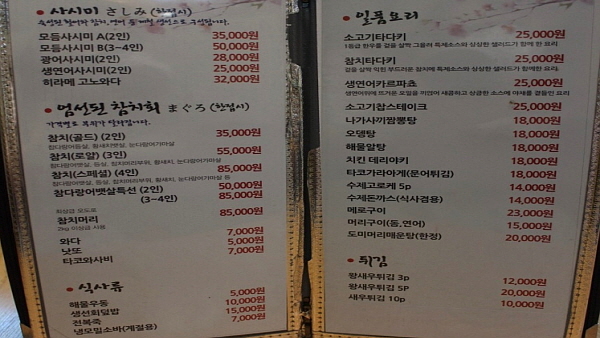 사시미 さしみ (한접시)
모듬사시미 A(2인) 35,000원
모듬사시미 B(3~4인) 50,000원
광어사시미(2인) 28,000원
생연어사시미(2인) 25,000원
히라메 고노와다 32,000원
엄선된 참치회 まぐろ (한접시)
가격별로 부위가 달라집니다.
참치(골드) (2인) 35,000원
참치(로얄) (3인) 55,000원
참치(스페셜) (4인) 85,000원
참다랑어뱃살특선 (2인) 50,000원
(3~4인) 85,000원
최상급 오도로
참치머리 85,000원
2kg 이상급 사용
와다 7,000원
낫또 5,000원
타코와사비 7,000원
식사류
해물우동 5,000원
생선회덮밥 10,000원
전복죽 15,000원
냉모밀소바(계절용) 7,000원
일품요리
소고기타다키 25,000원
참치타다키 25,000원
생연어카르파쵸 25,000원
소고기찹스테이크 25,000원
나가사끼짬뽕탕 18,000원
오뎅탕 18,000원
해물알탕 18,000원
치킨 데리야키 18,000원
타코가라아게(문어튀김) 18,000원
수제고로케 5p 14,000원
수제돈까스(식사겸용) 14,000원
메로구이 23,000원
머리구이(돔,연어) 15,000원
도미머리매운탕(한정) 20,000원
튀김
왕새우튀김 3p 12,000원
왕새우튀김 5P 20,000원
새우튀김 10p 10,000원